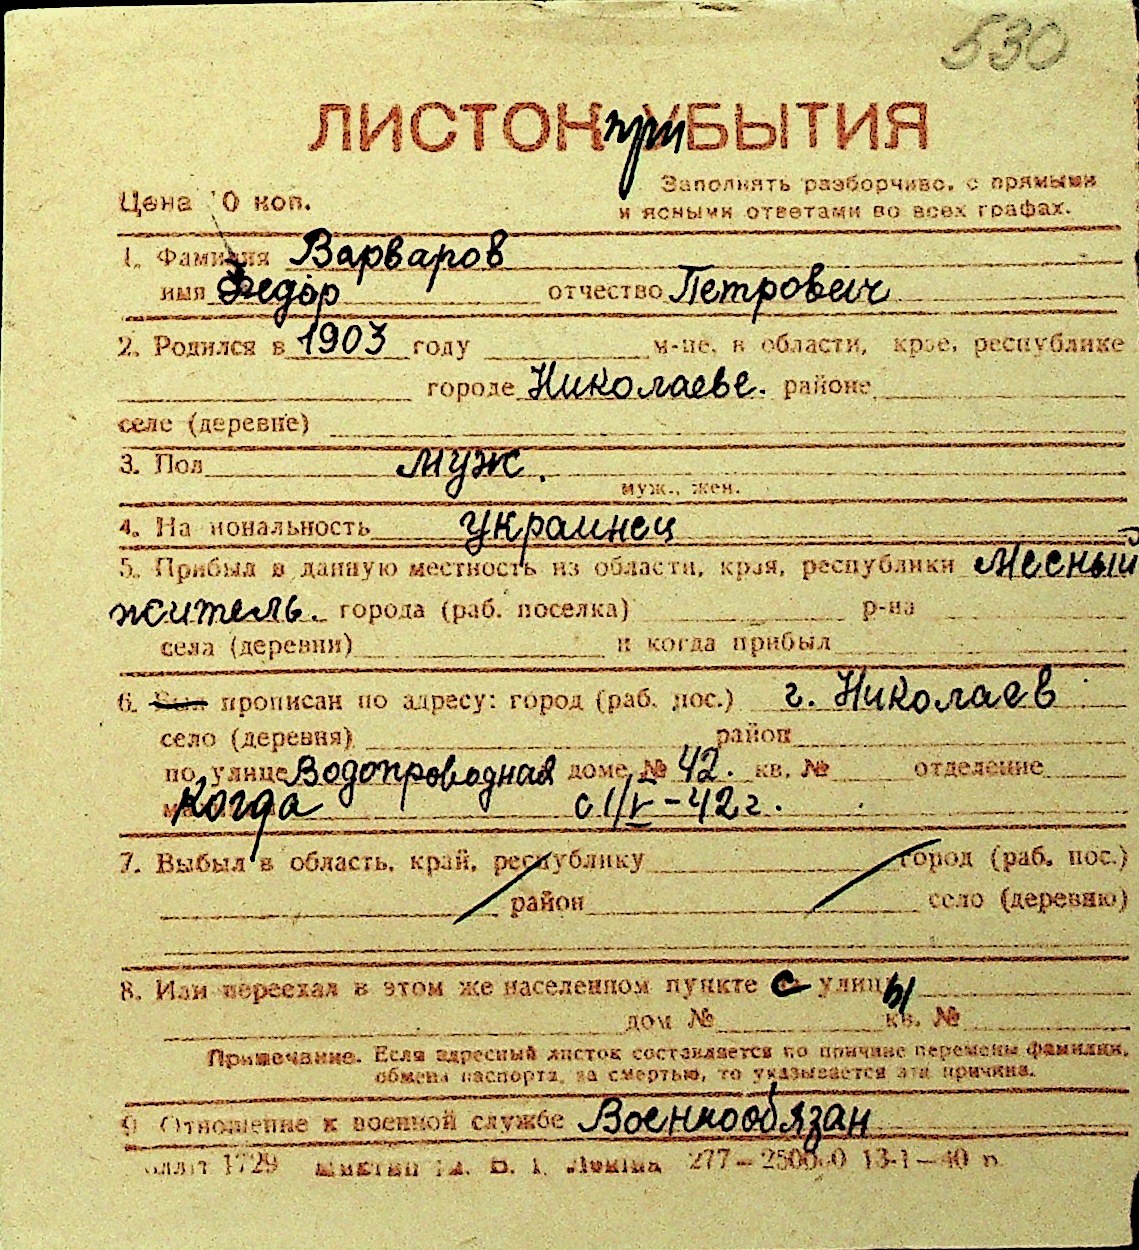 530
ЛИСТОК приБЫТИЯ
Цена 10 коп.
Заполнять разборчиво, с прямыми
и ясными ответами во всех графах.
1. Фамилия Варваров
имя Федор отчество Петрович
2. Родился в 1903 году м-це, в области, крае, республике
городе Николаеве. районе
селе (деревне)
3. Пол муж.
муж., жен.
4. Национальность украинец
5. Прибыл в данную местность из области, края, республики Месный
житель. города (раб. поселка) р-на
села (деревни) и когда прибыл
6. Был прописан по адресу: город (раб. пос.) г. Николаев
село (деревня) район
по улице Водопроводная доме № 42. кв. № отделение
Когда с 1/V-42 г.
7. Выбыл в область, край, республику город (раб. пос.)
район село (деревню)
8. Или переехал в этом же населенном пункте с улицы
дом № кв. №
Примечание. Если адресный листок составляется по причине перемены фамилии,
обмена паспорта, за смертью, то указывается эта причина.
9 Отношение к военной службе Военнообязан
1729 В. І. Леніна 277—250000 13-1—40 р.